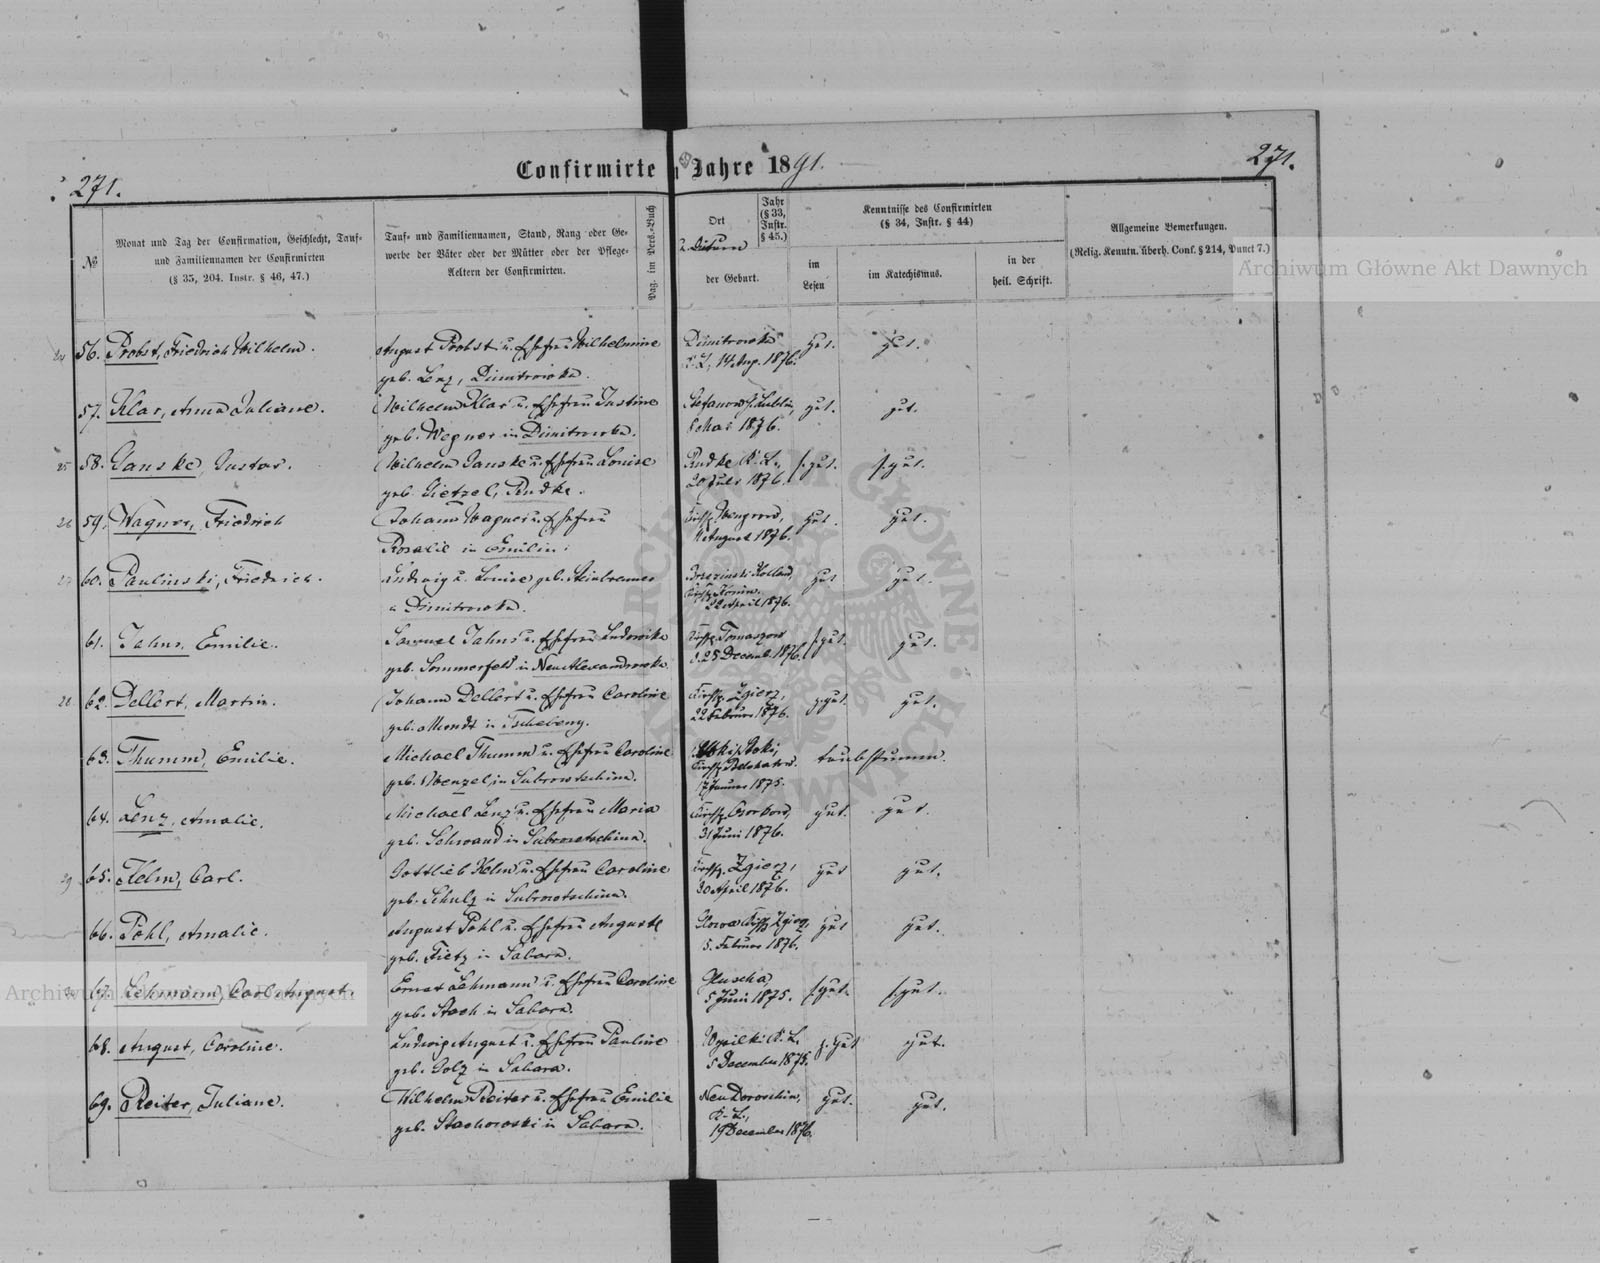 271.
Confirmirte Jahre 1891.
271.
№
Monat und Tag der Confirmation, Geschlecht, Tauf-
und Familiennamen der Confirmirten
(§ 35, 204. Instr. § 46, 47.)
Tauf- und Familiennamen, Stand, Rang oder Ge-
werbe der Väter oder der Mütter oder der Pflege-
Aeltern der Confirmirten.
Pag. im Pers.-Buch
Ort
u. Datum
der Geburt.
Jahr
(§ 33,
Instr.
§ 45.)
Kenntnisse des Confirmirten
(§ 34, Instr. § 44)
im
Lesen
im Katechismus.
in der
heil. Schrift.
Allgemeine Bemerkungen.
(Relig. Kenntn. überh. Conf. § 214, Punct 7.)
Archiwum Główne Akt Dawnych
24 56. Probst, Friedrich Wilhelm. August Probst u. Ehefrau Wilhelmine Dimitrowka gut. gut.
geb. Lenz, Dimitrowka. K. L., 14 Aug. 1876.
57. Klar, Anna Juliane. Wilhelm Klar u. Ehefrau Justine Stefanow, Lublin, gut. gut.
geb. Wegner in Dimitrowka. 1876.
25 58. Janske, Gustav. Wilhelm Janske u. Ehefrau Louise Rudke K. L., s. gut. s. gut.
geb. Gietzel, Rudke. 20 Juli 1876.
26 59. Wagner, Friedrich Johann Wagner u. Ehefrau Kirchsp. Wengrow, gut. gut.
Rosalie in Emilin. August 1876.
27 60. Paulinski, Friedrich. Ludwig u. Louise geb. Steinbrenner Holland, gut gut.
Dimitrowka. Kirchsp. Konin.
22 April 1876.
61. Jahns, Emilie. Samuel Jahns u. Ehefrau Ludowika Kirchsp. Tomaszow s. gut. gut.
geb. Sommerfeld in Neu Alexandrowka. d. 25 Decemb. 1876.
28 62. Dellert, Martin. Johann Dellert u. Ehefrau Caroline Kirchsp. Zgierz, z. gut. gut.
geb. Mundt in Tscheberg. 22 Februar 1876.
63. Thumm, Emilie. Michael Thumm u. Ehefrau Caroline taubstumm.
geb. Wenzel, in Subrowtschina. Kirchsp. Belchatow.
17 Januar 1875.
64. Lenz, Amalie. Michael Lenz u. Ehefrau Maria Kirchsp. Osorkow, gut. gut.
geb. Schwand in Subrowtschina. 31 Juni 1876.
29 65. Kelm, Carl. Gottlieb Kelm u. Ehefrau Caroline Kirchsp. Zgierz, gut gut.
geb. Schulz in Subrowtschina. 30 April 1876.
66. Pohl, Amalie. August Pohl u. Ehefrau Auguste Kirchsp. Zgierz, gut gut.
geb. Tietz in Sabara. 5. Februar 1876.
30 67. Lehmann, Carl August. Ernst Lehmann u. Ehefrau Caroline Pluscha, s. gut. s. gut.
geb. Stach in Sabara. 5 Juni 1875.
Archiwum Główne Akt Dawnych
68. August, Caroline. Ludwig August u. Ehefrau Pauline K. L. z. gut gut.
geb. Golz in Sabara. 5 December 1875.
69. Reiter, Juliane. Wilhelm Reiter u. Ehefrau Emilie Neu Doroschin, gut. gut.
geb. Stachowski in Sabara. K. L.,
19 December 1876.
ARCHIWUM GŁÓWNE AKT DAWNYCH